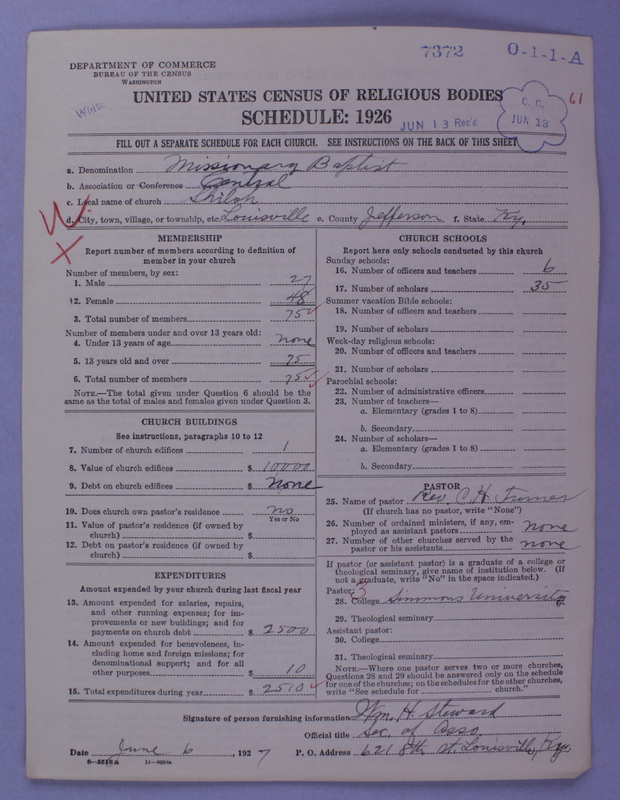 7372
O-1-1-A
DEPARTMENT OF COMMERCE
BUREAU OF THE CENSUS
WASHINGTON
White
UNITED STATES CENSUS OF RELIGIOUS BODIES
SCHEDULE: 1926
JUN 13 Rec'd
C. C.
JUN 13
61
FILL OUT A SEPARATE SCHEDULE FOR EACH CHURCH. SEE INSTRUCTIONS ON THE BACK OF THIS SHEET
a. Denomination Missionary Baptist
b. Association or Conference Central
c. Local name of church Shiloh
d. City, town, village, or township, etc. Louisville e. County Jefferson f. State Ky.
MEMBERSHIP
Report number of members according to definition of
member in your church
Number of members, by sex:
1. Male 27
12. Female 48
3. Total number of members 75
Number of members under and over 13 years old:
4. Under 13 years of age none
5. 13 years old and over 75
6. Total number of members 75
NOTE.—The total given under Question 6 should be
the same as the total of males and females given under Question 3.
CHURCH BUILDINGS
See instructions, paragraphs 10 to 12
7. Number of church edifices 1
8. Value of church edifices $ 10000
9. Debt on church edifices $ None
10. Does church own pastor's residence no
Yes or No
11. Value of pastor's residence (if owned by
church) $
12. Debt on pastor's residence (if owned by
church) $
EXPENDITURES
Amount expended by your church during last fiscal year
13. Amount expended for salaries, repairs,
and other running expenses; for im-
provements or new buildings; and for
payments on church debt $ 2500
14. Amount expended for benevolences, in-
cluding home and foreign missions; for
denominational support; and for all
other purposes $ 10
15. Total expenditures during year $ 2510
CHURCH SCHOOLS
Report here only schools conducted by this church
Sunday schools:
16. Number of officers and teachers 6
17. Number of scholars 35
Summer vacation Bible schools:
18. Number of officers and teachers
19. Number of scholars
Week-day religious schools:
20. Number of officers and teachers
21. Number of scholars
Parochial schools:
22. Number of administrative officers
23. Number of teachers—
a. Elementary (grades 1 to 8)
b. Secondary
24. Number of scholars—
a. Elementary (grades 1 to 8)
b. Secondary
PASTOR
25. Name of pastor Rev. C. H. Turner
(If church has no pastor, write "None")
26. Number of ordained ministers, if any, em-
ployed as assistant pastors none
27. Number of other churches served by the
pastor or his assistants none
If pastor (or assistant pastor) is a graduate of a college or
theological seminary, give name of institution below. (If
not a graduate, write "No" in the space indicated.)
Pastor: 3
28. College Simmons University
29. Theological seminary
Assistant pastor:
30. College
31. Theological seminary
NOTE.—Where one pastor serves two or more churches,
Questions 28 and 29 should be answered only on the schedule
for one of the churches; on the schedules for the other churches,
write "See schedule for church."
Signature of person furnishing information Wm. H. Steward
Official title Sec. of Asso.
Date June 6, 1927 P. O. Address 621 8th st. Louisville, Ky.